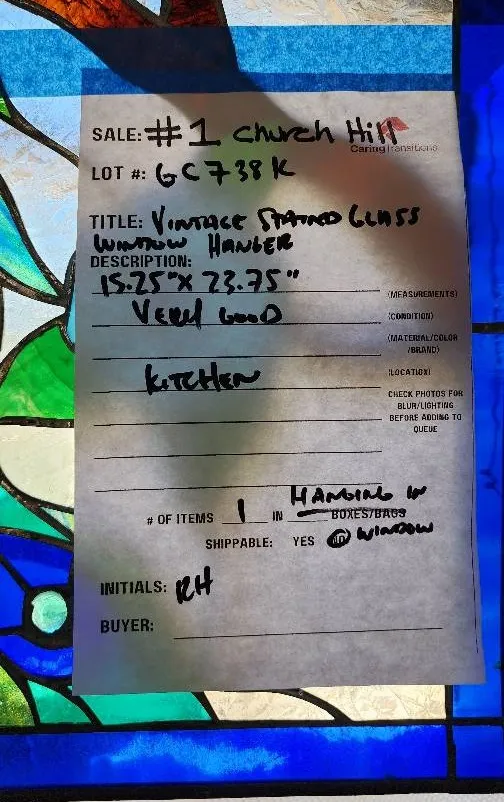 SALE: #1 Church Hill
CaringTransitions
LOT #: GC738K
TITLE: VINTAGE STAINED GLASS
WINDOW HANGER
DESCRIPTION:
15.25"X 23.75"
(MEASUREMENTS)
VERY GOOD
(CONDITION)
(MATERIAL/COLOR
/BRAND)
KITCHEN
(LOCATION)
CHECK PHOTOS FOR
BLUR/LIGHTING
BEFORE ADDING TO
QUEUE
HANGING IN
# OF ITEMS 1 IN BOXES/BAGS
SHIPPABLE: YES NO WINDOW
INITIALS: RH
BUYER: